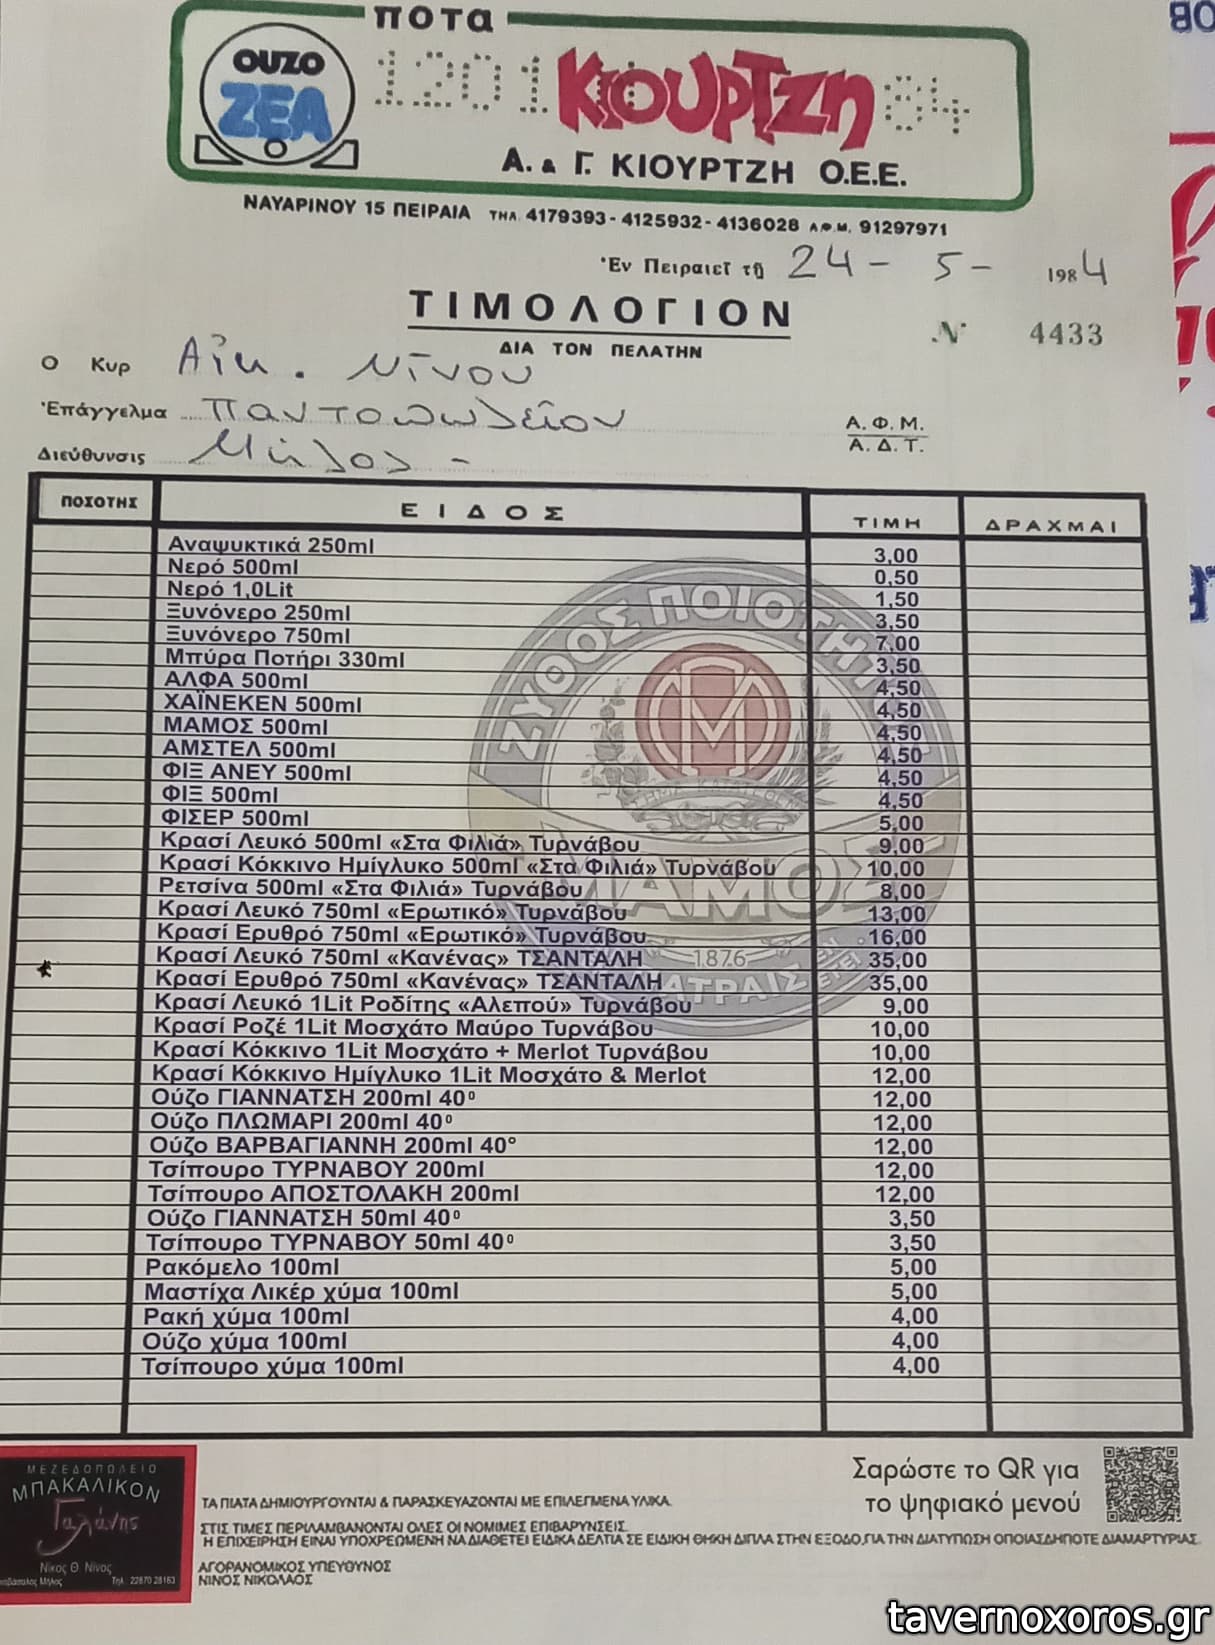 ποτα
ΟΥΖΟ
ΖΕΑ
1201
ΚΙΟΥΡΤΖη
84
Α. & Γ. ΚΙΟΥΡΤΖΗ Ο.Ε.Ε.
ΝΑΥΑΡΙΝΟΥ 15 ΠΕΙΡΑΙΑ ΤΗΛ. 4179393 - 4125932 - 4136028 Α.Φ.Μ. 91297971
Ἐν Πειραιεῖ τῇ 24 - 5 - 1984
ΤΙΜΟΛΟΓΙΟΝ
ΔΙΑ ΤΟΝ ΠΕΛΑΤΗΝ
Ν° 4433
Ο Κυρ Αἰκ. Νίνου
Ἐπάγγελμα Παντοπωλεῖον
Α.Φ.Μ.
Α.Δ.Τ.
Διεύθυνσις Μῆλος -
ΠΟΣΟΤΗΣ ΕΙΔΟΣ ΤΙΜΗ ΔΡΑΧΜΑΙ
Αναψυκτικά 250ml 3,00
Νερό 500ml 0,50
Νερό 1,0Lit 1,50
Ξυνόνερο 250ml 3,50
Ξυνόνερο 750ml 7,00
Μπύρα Ποτήρι 330ml 3,50
ΑΛΦΑ 500ml 4,50
ΧΑΪΝΕΚΕΝ 500ml 4,50
ΜΑΜΟΣ 500ml 4,50
ΑΜΣΤΕΛ 500ml 4,50
ΦΙΞ ΑΝΕΥ 500ml 4,50
ΦΙΞ 500ml 4,50
ΦΙΣΕΡ 500ml 5,00
Κρασί Λευκό 500ml «Στα Φιλιά» Τυρνάβου 9,00
Κρασί Κόκκινο Ημίγλυκο 500ml «Στα Φιλιά» Τυρνάβου 10,00
Ρετσίνα 500ml «Στα Φιλιά» Τυρνάβου 8,00
Κρασί Λευκό 750ml «Ερωτικό» Τυρνάβου 13,00
Κρασί Ερυθρό 750ml «Ερωτικό» Τυρνάβου 16,00
Κρασί Λευκό 750ml «Κανένας» ΤΣΑΝΤΑΛΗ 35,00
Κρασί Ερυθρό 750ml «Κανένας» ΤΣΑΝΤΑΛΗ 35,00
Κρασί Λευκό 1Lit Ροδίτης «Αλεπού» Τυρνάβου 9,00
Κρασί Ροζέ 1Lit Μοσχάτο Μαύρο Τυρνάβου 10,00
Κρασί Κόκκινο 1Lit Μοσχάτο + Merlot Τυρνάβου 10,00
Κρασί Κόκκινο Ημίγλυκο 1Lit Μοσχάτο & Merlot 12,00
Ούζο ΓΙΑΝΝΑΤΣΗ 200ml 40⁰ 12,00
Ούζο ΠΛΩΜΑΡΙ 200ml 40⁰ 12,00
Ούζο ΒΑΡΒΑΓΙΑΝΝΗ 200ml 40° 12,00
Τσίπουρο ΤΥΡΝΑΒΟΥ 200ml 12,00
Τσίπουρο ΑΠΟΣΤΟΛΑΚΗ 200ml 12,00
Ούζο ΓΙΑΝΝΑΤΣΗ 50ml 40⁰ 3,50
Τσίπουρο ΤΥΡΝΑΒΟΥ 50ml 40⁰ 3,50
Ρακόμελο 100ml 5,00
Μαστίχα Λικέρ χύμα 100ml 5,00
Ρακή χύμα 100ml 4,00
Ούζο χύμα 100ml 4,00
Τσίπουρο χύμα 100ml 4,00
ΖΥΘΟΣ ΠΟΙΟΤΗΤ
ΜΑΜΟΣ
1876
ΜΕΖΕΔΟΠΩΛΕΙΟ
ΜΠΑΚΑΛΙΚΟΝ
Γαλάνης
Νίκος Θ. Νίνος
Μήλος Τηλ.: 22870 28163
Σαρώστε το QR για
το ψηφιακό μενού
ΤΑ ΠΙΑΤΑ ΔΗΜΙΟΥΡΓΟΥΝΤΑΙ & ΠΑΡΑΣΚΕΥΑΖΟΝΤΑΙ ΜΕ ΕΠΙΛΕΓΜΕΝΑ ΥΛΙΚΑ.
ΣΤΙΣ ΤΙΜΕΣ ΠΕΡΙΛΑΜΒΑΝΟΝΤΑΙ ΟΛΕΣ ΟΙ ΝΟΜΙΜΕΣ ΕΠΙΒΑΡΥΝΣΕΙΣ.
Η ΕΠΙΧΕΙΡΗΣΗ ΕΙΝΑΙ ΥΠΟΧΡΕΩΜΕΝΗ ΝΑ ΔΙΑΘΕΤΕΙ ΕΙΔΙΚΑ ΔΕΛΤΙΑ ΣΕ ΕΙΔΙΚΗ ΘΗΚΗ ΔΙΠΛΑ ΣΤΗΝ ΕΞΟΔΟ,ΓΙΑ ΤΗΝ ΔΙΑΤΥΠΩΣΗ ΟΠΟΙΑΣΔΗΠΟΤΕ ΔΙΑΜΑΡΤΥΡΙΑΣ.
ΑΓΟΡΑΝΟΜΙΚΟΣ ΥΠΕΥΘΥΝΟΣ
ΝΙΝΟΣ ΝΙΚΟΛΑΟΣ
tavernoxoros.gr